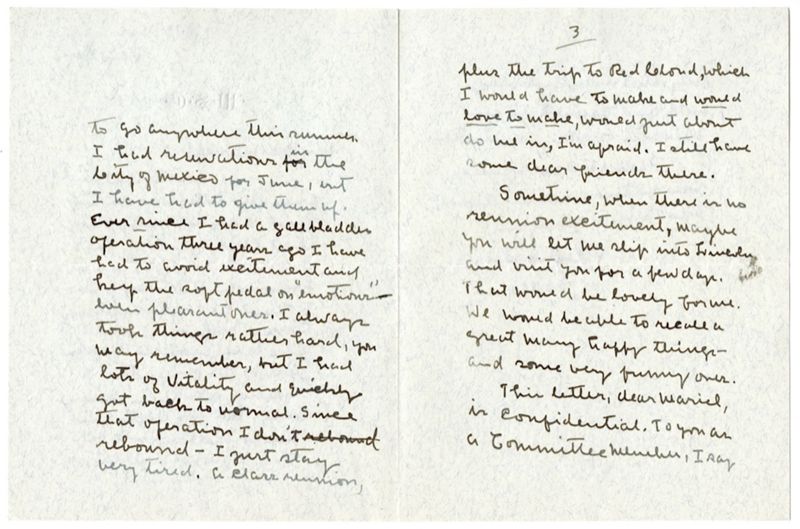 to go anywhere this summer.
I had reservations for in the
City of Mexico for June, but
I have had to give them up.
Ever since I had a gall bladder
operation three years ago I have
had to avoid excitement and
keep the soft pedal on "emotions"—
even pleasant ones. I always
took things rather hard, you
may remember, but I had
lots of Vitality and quickly
got back to normal. Since
that operation I don't rebound
rebound – I just stay
very tired. A class reunion,
3
plus the trip to Red Cloud, which
I would have to make and would
love to make, would just about
do me in, I'm afraid. I still have
some dear friends there.
Sometime, when there is no
reunion excitement, maybe
you will let me slip into Lincoln
and visit you for a few days.
That would be lovely for me.
We would be able to recall a
great many happy things –
and some very funny ones.
This letter, dear Mariel,
is confidential. To you as
a Committee Member, I say